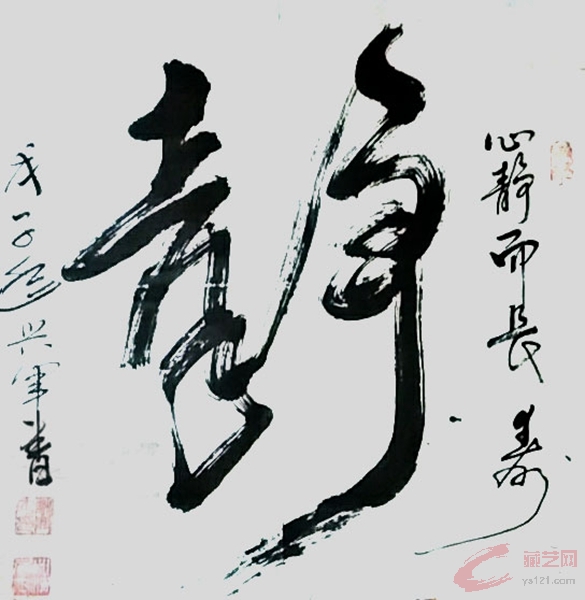 心静而长寿
静
戊子 兴军书
藏艺网
ys121.com